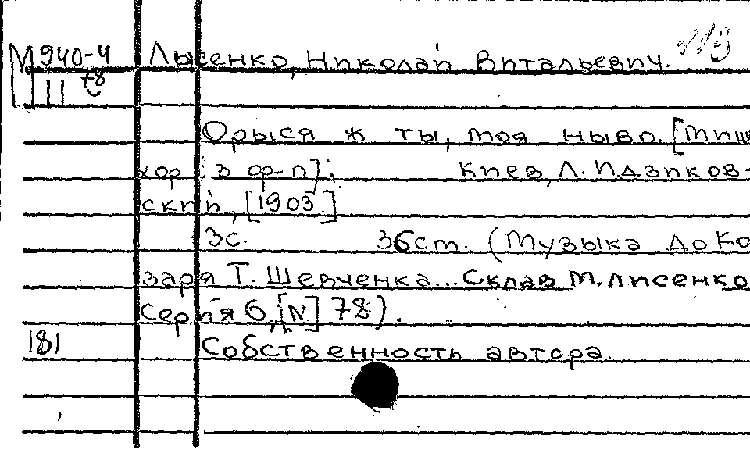 М 940-4 Лысенко, Николай Витальевич.
78
Орыся ж ты, моя ныво. [Миш
хор [з ор-п]. Киев, Л. Идзиков-
ский, [1903]
3с. 36ст. (Музыка до Ко
заря Т. Шевченка... Склав М. Лисенко
Серия 6, [N] 78).
181 Собственность автора.